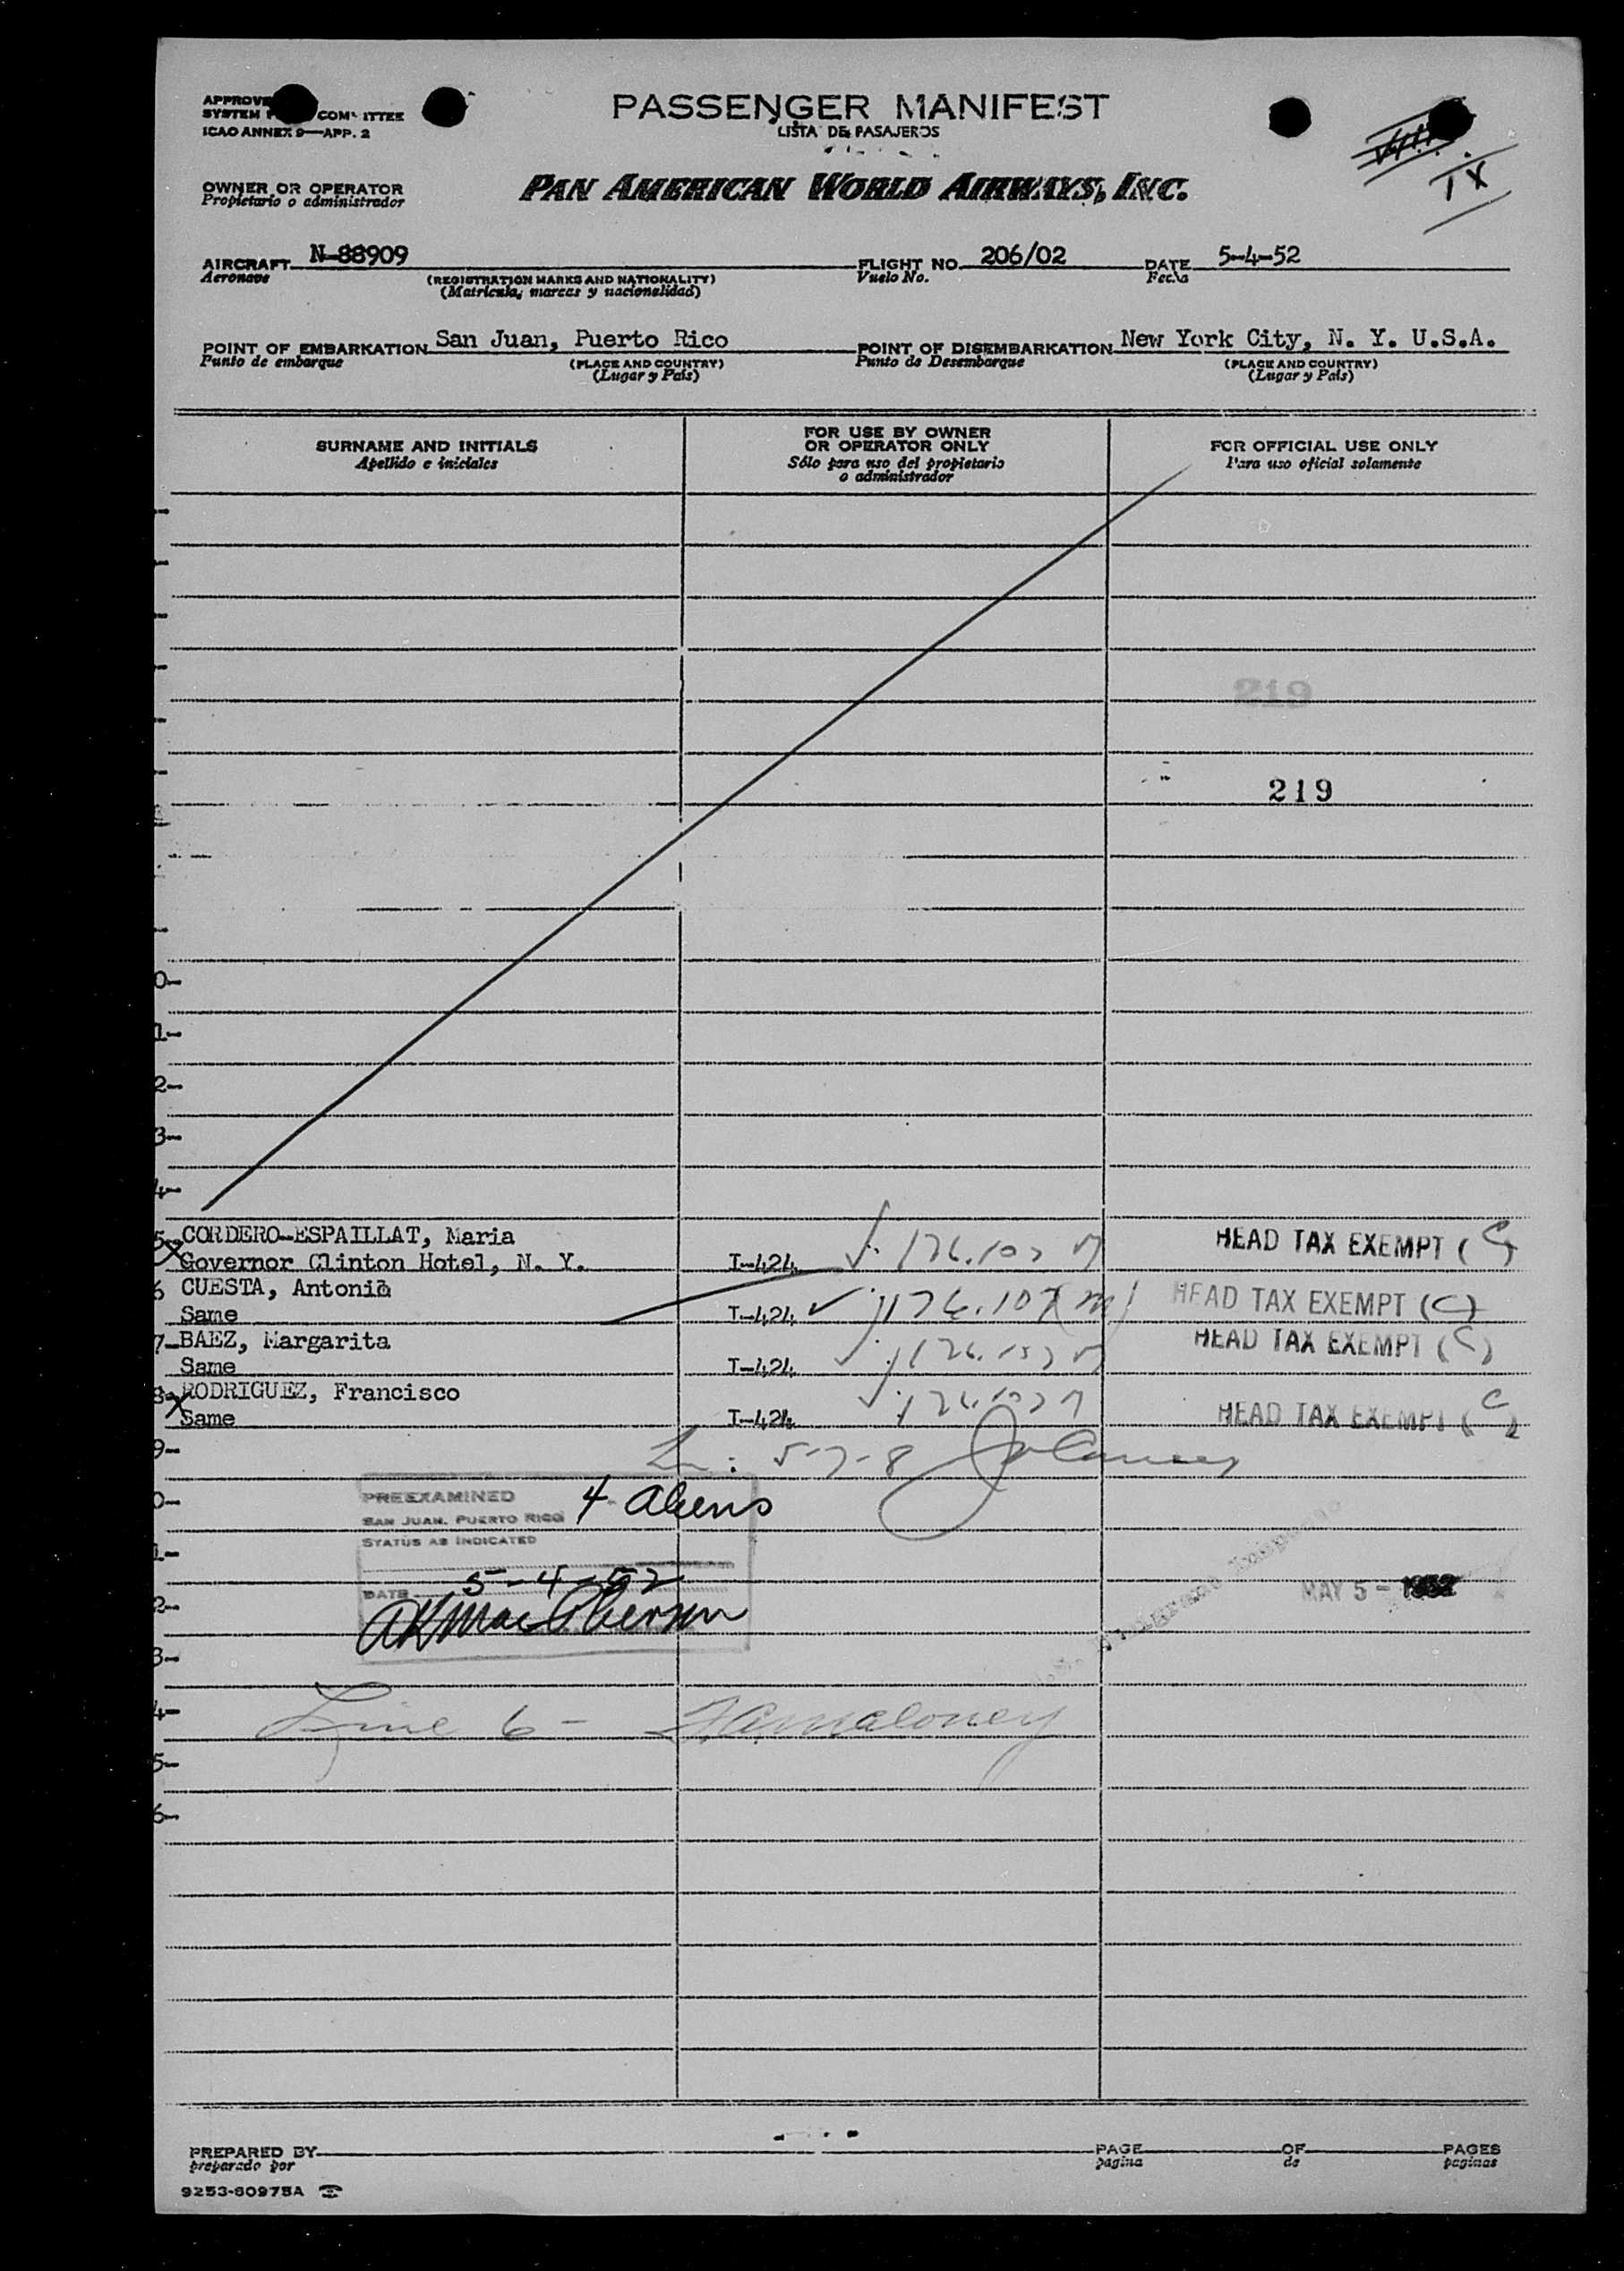 PASSENGER MANIFEST
LISTA DE PASAJEROS
SYSTEM COMMITTEE
ICAO ANNEX 9—APP. 2
OWNER OR OPERATOR
Propietario o administrador
PAN AMERICAN WORLD AIRWAYS, INC.
IX
AIRCRAFT N-88909 FLIGHT NO. 206/02 DATE 5-4-52
Aeronave (REGISTRATION MARKS AND NATIONALITY) Vuelo No. Fecha
(Matrícula, marcas y nacionalidad)
POINT OF EMBARKATION San Juan, Puerto Rico POINT OF DISEMBARKATION New York City, N. Y. U.S.A.
Punto de embarque (PLACE AND COUNTRY) Punto de Desembarque (PLACE AND COUNTRY)
(Lugar y País) (Lugar y País)
SURNAME AND INITIALS FOR USE BY OWNER OR OPERATOR ONLY FOR OFFICIAL USE ONLY
Apellido e iniciales Sólo para uso del propietario o administrador Para uso oficial solamente
219
219
0-
1-
2-
3-
4-
5- CORDERO-ESPAILLAT, Maria
Governor Clinton Hotel, N. Y. I-424 176.107 M HEAD TAX EXEMPT (C)
6 CUESTA, Antonia
Same I-424 176.107(M) HEAD TAX EXEMPT (C)
7-BAEZ, Margarita
Same I-424 176.107 M HEAD TAX EXEMPT (C)
8- RODRIGUEZ, Francisco
Same I-424 176.107 M HEAD TAX EXEMPT (C)
9- 5-7-8
0- PREEXAMINED 4 Aliens
SAN JUAN, PUERTO RICO
STATUS AS INDICATED
1-
DATE 5-4-52 MAY 5 - 1952
2- AKMacPherson
3-
4- Line 6- Maloney
5-
6-
PREPARED BY PAGE OF PAGES
preparado por pagina de paginas
9253-60975A